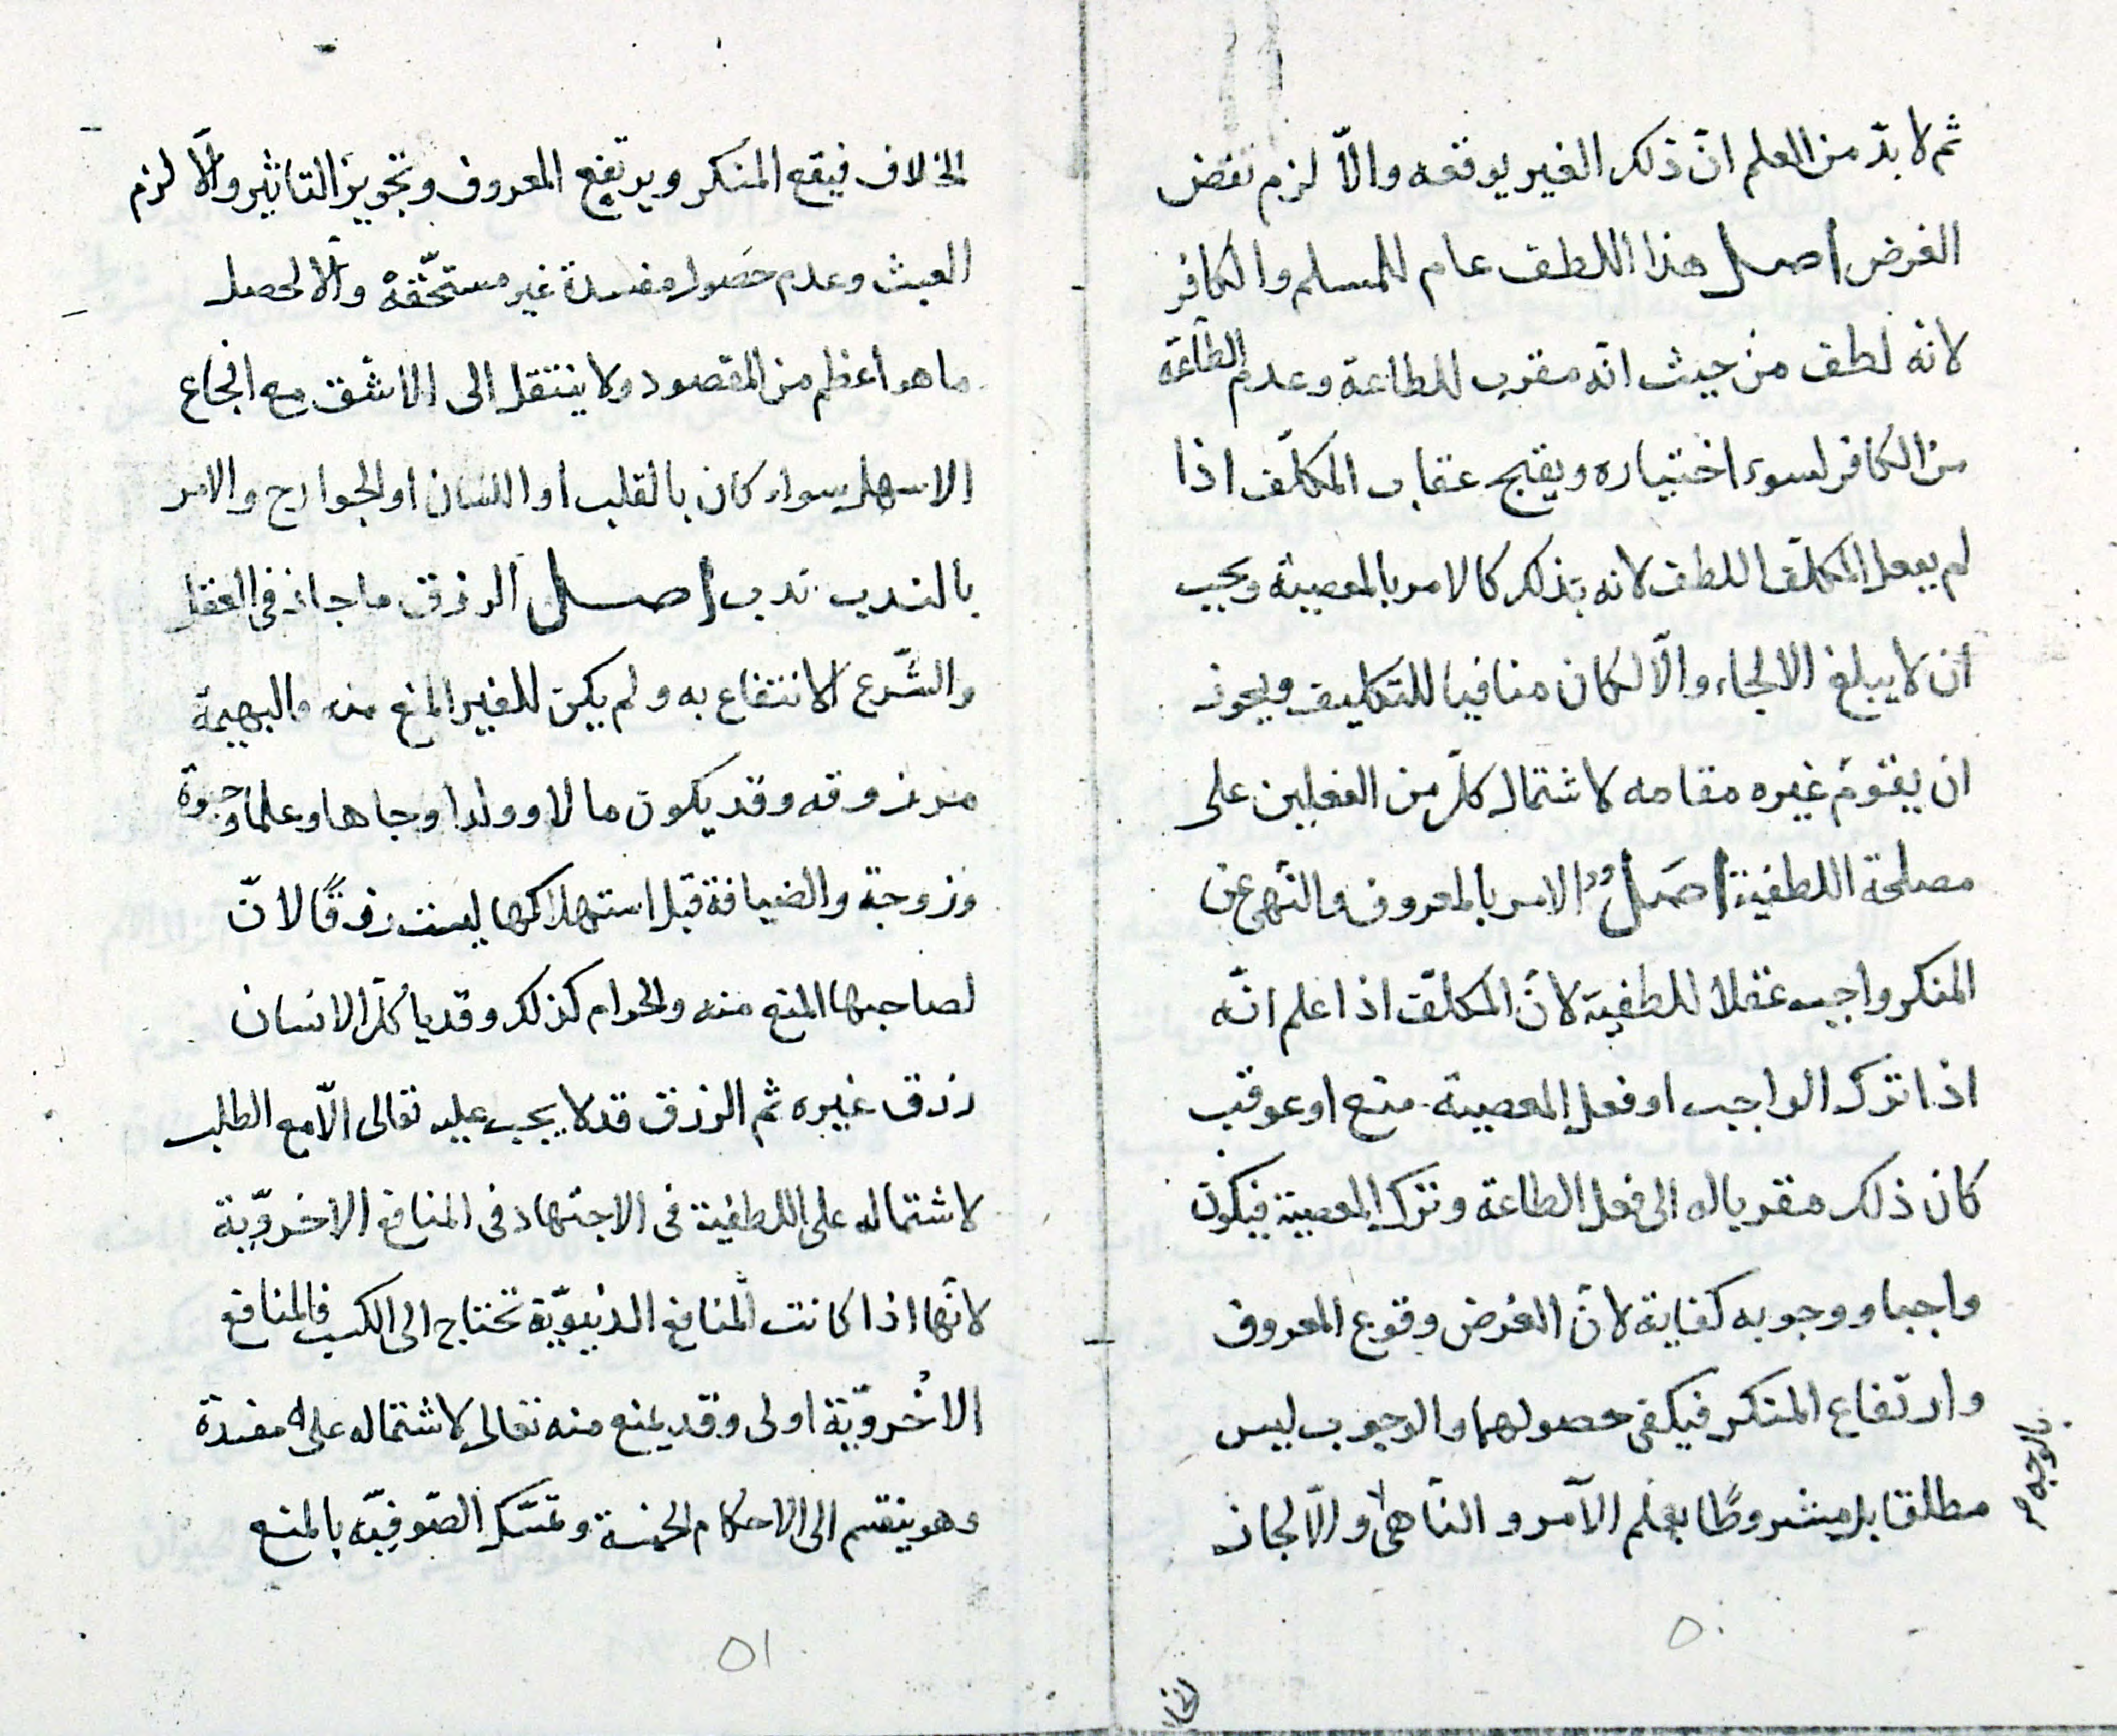 ثم لا بدّ من العلم انّ ذلك الغير يوقعه والّا لزم نقض
الغرض اصل هذا اللطف عام للمسلم والكافر
لانه لطف من حيث انّه مقرب للطاعة وعدم الطاعة
من الكافر لسوء اختياره ويقبح عقاب المكلّف اذا
لم يفعل المكلّف اللطف لانه بذلك كالامر بالمعصية ويجب
ان لا يبلغ الالجاء والّا لكان منافيا للتكليف ويجوز
ان يقوم غيره مقامه لاشتمال كلّ من الفعلين على
مصلحة اللطفية اصل الامر بالمعروف والنّهى عن
المنكر واجب عقلا للطفية لانّ المكلّف اذا علم انّه
اذا ترك الواجب او فعل المعصية منع او عوقب
كان ذلك مقربا له الى فعل الطاعة وترك المعصية فيكون
واجبا ووجوبه كفاية لانّ الغرض وقوع المعروف
وارتفاع المنكر فيكفى حصولهما والوجوب ليس
مطلقا بل مشروطًا بعلم الآمر والنّاهى والّا لجاز
بالوجه م
٥٠
الخلاف فيقع المنكر ويرتفع المعروف وتجويز التاثير والّا لزم
العبث وعدم حصول مفسدة غير مستحقّة والّا لحصل
ما هو اعظم من المقصود ولا ينتقل الى الاشق مع انجاع
الاسهل سواء كان بالقلب او اللسان او الجوارح والامر
بالندب ندب اصل الرزق ما جاز فى العقل
والشّرع الانتفاع به ولم يكن للغير المنع منه والبهيمة
مرزوقه وقد يكون مالا وولدا وجاها وعلما وحيوة
وزوجة والضيافة قبل استهلاكها ليست رزقًا لانّ
لصاحبها المنع منه والحرام كذلك وقد ياكل الانسان
رزق غيره ثم الرزق قد لا يجب عليه تعالى الّا مع الطلب
لاشتماله على اللطفية فى الاجتهاد فى المنافع الاخرويّة
لانّها اذا كانت المنافع الدنيويّة تحتاج الى الكسب فالمنافع
الاخرويّة اولى وقد يمنع منه تعالى لاشتماله على مفسدة
وهو ينقسم الى الاحكام الخمسة وتمسّك الصّوفيّه بالمنع
٥١